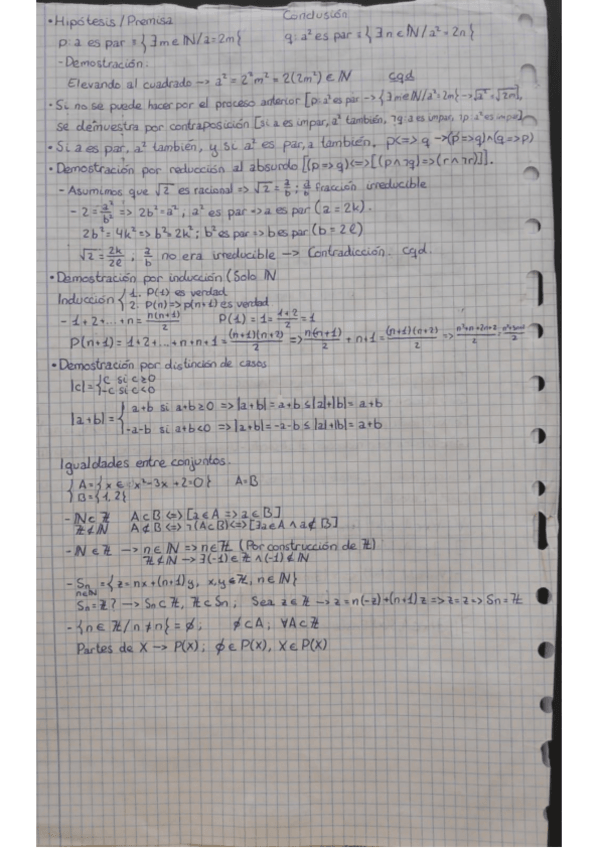 • Hipótesis/Premisa Conclusión
p: a es par ≡ {∃m∈ℕ/a=2m} q: a² es par ≡ {∃n∈ℕ/a²=2n}
- Demostración.
Elevando al cuadrado → a²=2²m²=2(2m²)∈ℕ cqd
• Si no se puede hacer por el proceso anterior [p: a² es par → {∃m∈ℕ/a²=2m} → √a²=√2m],
se demuestra por contraposición [si a es impar, a² también, ¬q: a es impar, ¬p: a² es impar]
• Si a es par, a² también, y si a² es par, a también, p<=>q → (p=>q)∧(q=>p)
• Demostración por reducción al absurdo [(p=>q)<=>[(p∧¬q)=>(r∧¬r)]].
- Asumimos que √2 es racional => √2=a/b; a/b fracción irreducible
- 2=a²/b² => 2b²=a², a² es par => a es par (a=2k).
2b²=4k² => b²=2k²; b² es par => b es par (b=2ℓ)
√2=2k/2ℓ, a/b no era irreducible → Contradicción. cqd.
• Demostración por inducción (Solo ℕ
Inducción { 1: P(1) es verdad
2: P(n)=>p(n+1) es verdad
- 1+2+...+n=n(n+1)/2 P(1)=1=1+2/2=1
P(n+1)=1+2+...+n+n+1=(n+1)(n+2)/2 => n(n+1)/2+n+1=(n+1)(n+2)/2 =>
• Demostración por distinción de casos
|c|={c si c≥0
-c si c<0
|a+b|={a+b si a+b≥0 => |a+b|=a+b≤|a|+|b|=a+b
-a-b si a+b<0 => |a+b|=-a-b≤|a|+|b|=a+b
Igualdades entre conjuntos.
{A={x∈: x²-3x+2=0} A=B
B={1,2}
- ℕ⊂ℤ A⊂B <=> [a∈A => a∈B]
ℤ⊄ℕ A⊄B <=> ¬(A⊂B) <=> [∃a∈A ∧ a∉B]
- ℕ∈ℤ → n∈ℕ => n∈ℤ (Por construcción de ℤ)
ℤ⊄ℕ → ∃(-1)∈ℤ ∧ (-1)∉ℕ
- Sn={z=nx+(n+1)y, x,y∈ℤ, n∈ℕ}
n∈ℕ
Sn=ℤ? → Sn⊂ℤ, ℤ⊂Sn; Sea z∈ℤ → z=n(-z)+(n+1)z => z=z => Sn=ℤ
- {n∈ℤ/n≠n}=∅; ∅⊂A; ∀A⊂ℤ
Partes de X → P(X); ∅∈P(X), X∈P(X)